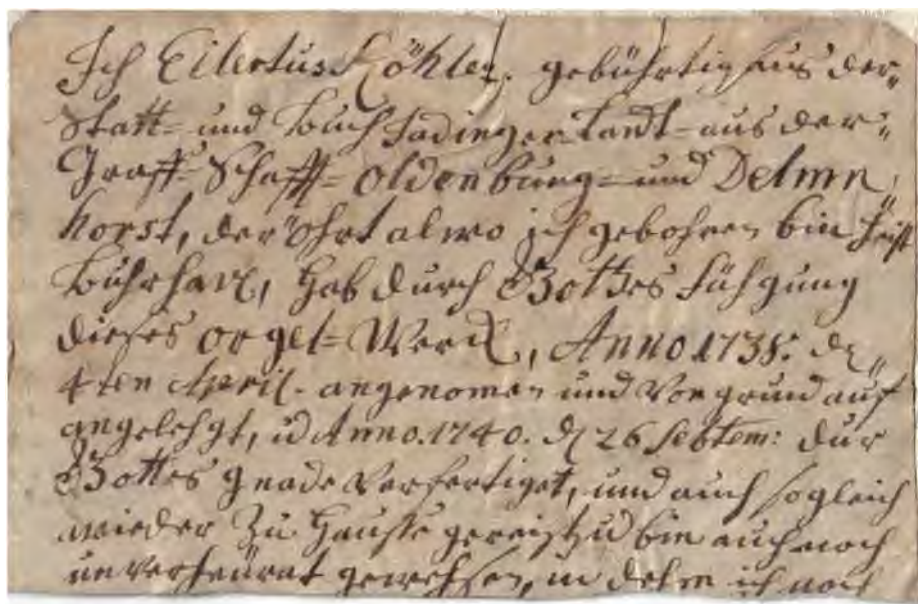 Ich Eilertus Köhler, gebührtig aus der
Statt- und Buch Sadinger Landt- aus der
Graff- Schafft- Oldenburg- und Delmn
horst, der öhrt alwo ich gebohren bin heist
Buhrhave, hab durch Gottes fühgung
dieses orgel- Werck, Anno 1738: d
4ten April. angenomen und von grund auf
angelehgt, u Anno. 1740. d 26 Sebtem: dur
Gottes gnade verfertiget, und auch sogleich
wieder zu Hausse gereist, u bin auch noch
unverheürat gewehsen, in dehm ich noch